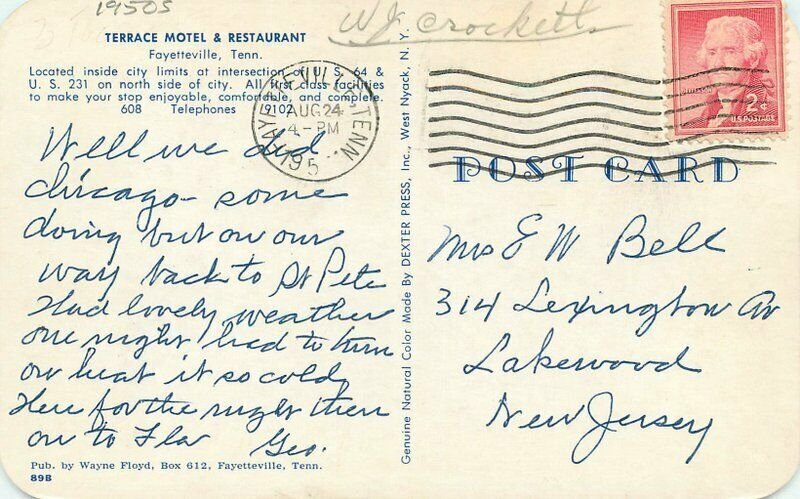 1950s
W J Crockett
TERRACE MOTEL & RESTAURANT
Fayetteville, Tenn.
Located inside city limits at intersection of U. S. 64 &
U. S. 231 on north side of city. All first class facilities
to make your stop enjoyable, comfortable, and complete.
608 Telephones 9102
FAYETTEVILLE TENN.
AUG 24
4-PM
195
JEFFERSON
2¢
U.S. POSTAGE
POST CARD
Well we did
chicago - some
doing but on our
way back to St Pete
Had lovely weather
one night had to turn
on heat it so cold
Here for the night then
on to Fla Geo.
Pub. by Wayne Floyd, Box 612, Fayetteville, Tenn.
89B
Genuine Natural Color Made By DEXTER PRESS, Inc., West Nyack, N. Y.
Mrs E W Bell
314 Lexington Av
Lakewood
New Jersey